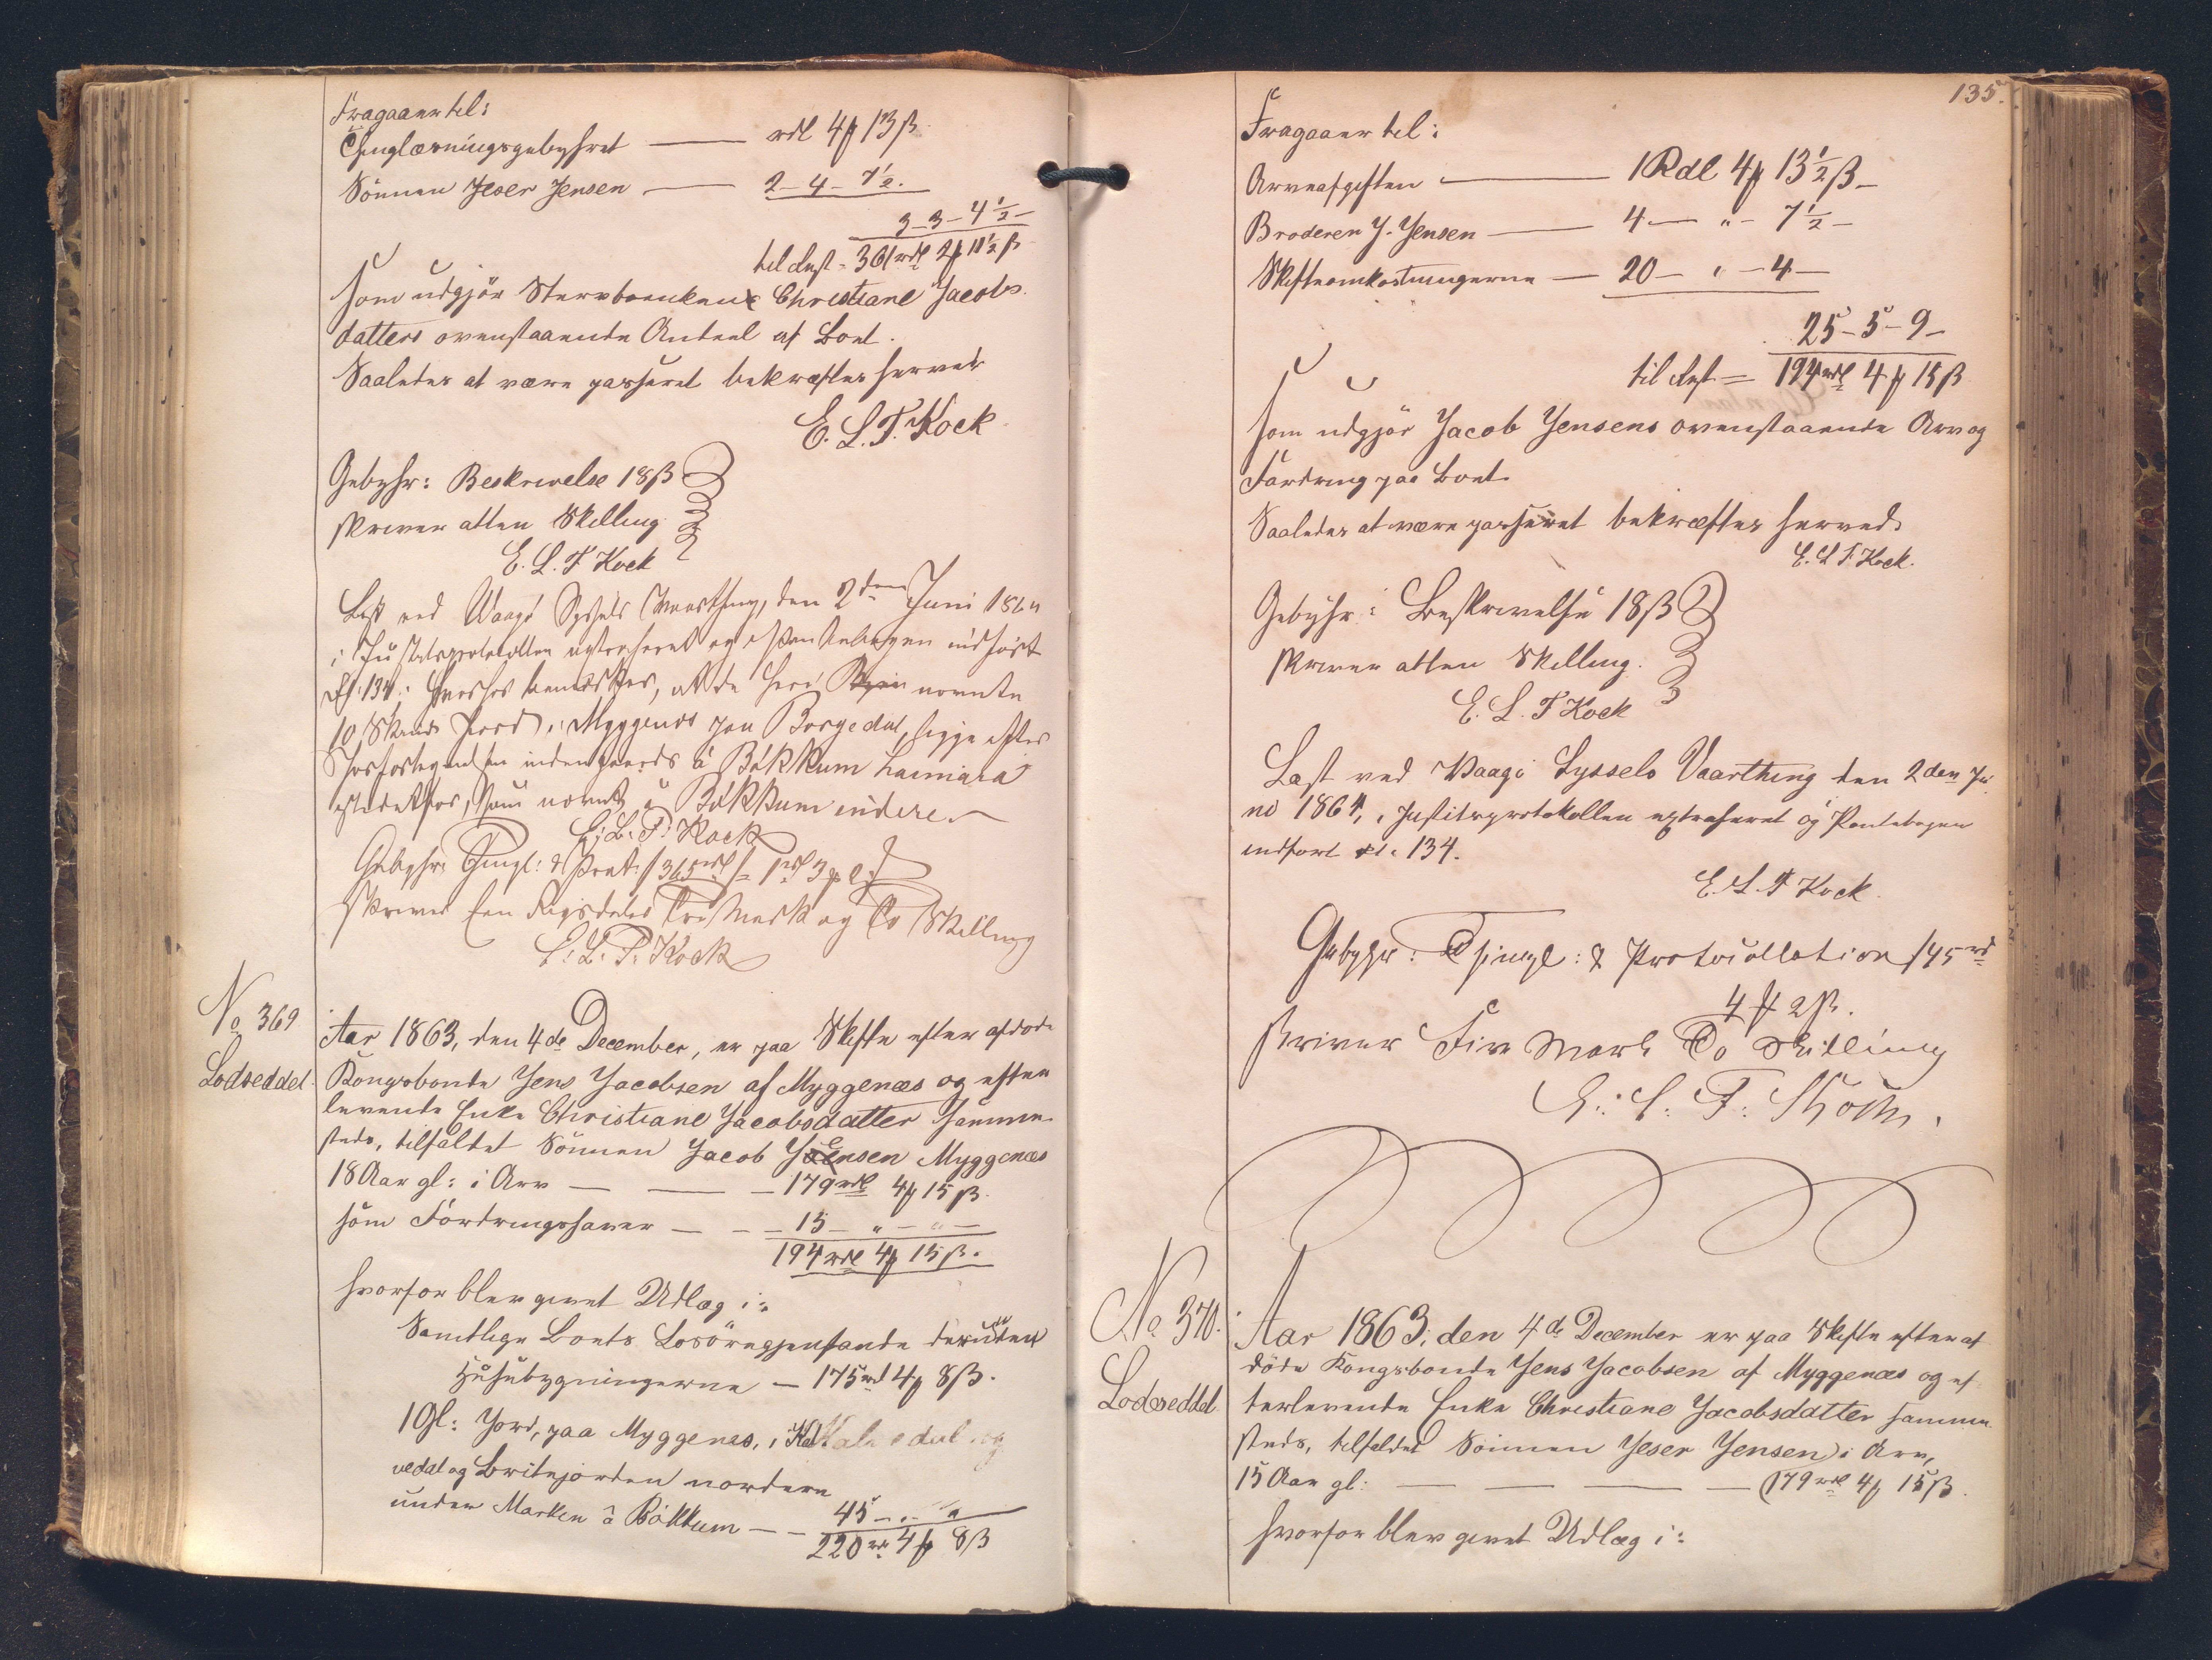 Fragaaer til:
Thinglæsningsgebyhret — rdl 4 ₰ 13 ß
Sønnen Jeser Jensen — 2 - 4 - 7½.
3 - 3 - 4½ -
til Rest = 361 rdl 2 ₰ 11½ ß
som udgjør Stervboenkens Christiane Jacobs
datters ovenstaaende Andeel af Boet.
Saaledes at være passeret bekræftes herved
E. L. T. Kock
Gebyhr: Beskrivelse 18 ß
skriver atten Skilling
E. L. T Kock
Læst ved Waagø Syssels Vaarthing, den 2den Juni 1864
i Justitsprotokollen extraheret og i Pantebogen indført
Fol: 134. Hvorhos bemærkes, at de heri nævnte
10 Skind Jord i Myggenæs paa Borgedal, ligge efter
indengaerds á Bákkum
som nævnt á Bákkum indere
E: L: T: Kock
Gebyhr: Thingl: & Prot: /365 rdl/ = 1 rd 3 ₰ 2 ß
skriver Een Rigsdaler Tre Mark og To Skilling
E: L: T: Kock
No 369
Lodseddel.
Aar 1863, den 4de December, er paa Skifte efter afdøde
Kongsbonde Jens Jacobsen af Myggenæs og efter
levende Enke Christiane Jacobsdatter samme
steds, tilfaldet Sønnen Jacob Jensen Myggenæs
18 Aar gl: i Arv — — 179 rdl 4 ₰ 15 ß.
som Fordringshaver — — 15 - " - " -
194 rdl 4 ₰ 15 ß.
hvorfor blev givet Udlæg i:
Samtlige Boets Losöregjenstande desuden
Huusbygningerne — 175 rd 4 ₰ 8 ß.
1 Gl: Jord, paa Myggenæs, i
og Britejorden nordere
under Marken á Bákkum — — 45 - " - "
220 rd 4 ₰ 8 ß
135.
Fragaaer til:
Arveafgiften — 1 Rdl 4 ₰ 13½ ß -
Broderen J. Jensen — 4 - " - 7½ -
Skifteomkostningerne — 20 - " - 4 -
25 - 5 - 9 -
til Rest = 194 rdl 4 ₰ 15 ß
som udgjør Jacob Jensens ovenstaaende Arv og
Fordring paa Boet.
Saaledes at være passeret bekræftes herved
E. L T. Kock.
Gebyhr: Beskrivelse 18 ß
skriver atten Skilling.
E. L. T Kock
Læst ved Waagø Syssels Vaarthing den 2den Ju
ni 1864, i Justitsprotokollen extraheret og Pantebogen
indført Fol. 134.
E. L. T Kock.
Gebyhr: Thingl: & Protocollation 145 rd
4 ₰ 2 ß.
skriver Fire Mark To Skilling
E: L: T: Kock.
No 370.
Lodseddel
Aar 1863, den 4de December er paa Skifte efter af
døde Kongsbonde Jens Jacobsen af Myggenæs og ef
terlevende Enke Christiane Jacobsdatter samme
steds, tilfaldet Sønnen Jeser Jensen i Arv,
15 Aar gl: — — — — 179 rdl 4 ₰ 15 ß.
hvorfor blev givet Udlæg i: